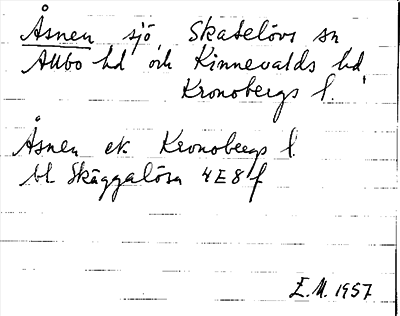 Åsnen sjö, Skatelövs sn
Allbo hd och Kinnevalds hd,
Kronobergs l.
Åsnen ek Kronobergs l.
bl Skäggalösa 4E8f
E.M. 1957